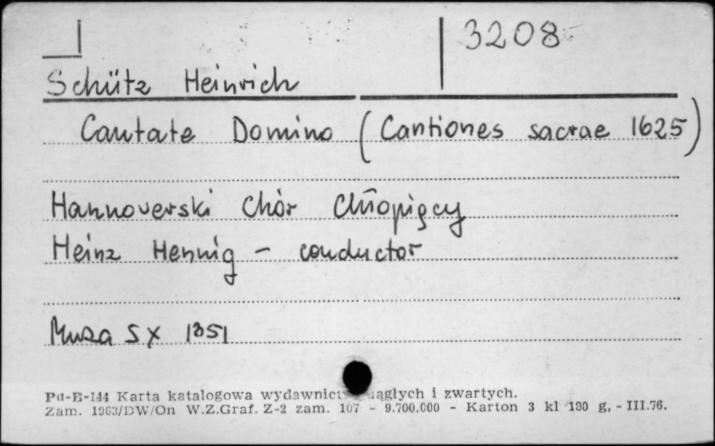 3208
Schütz Heinrich
Cantate Domino (Cantiones sacrae 1625)
Hannoverski Chór Chłopięcy
Heinz Hennig - conductor
Muza SX 1351
Pu-B-144 Karta katalogowa wydawnict ciągłych i zwartych.
Zam. 1963/DW/On W.Z.Graf. Z-2 zam. 107 - 9.700.000 - Karton 3 kl 180 g, - III.76.